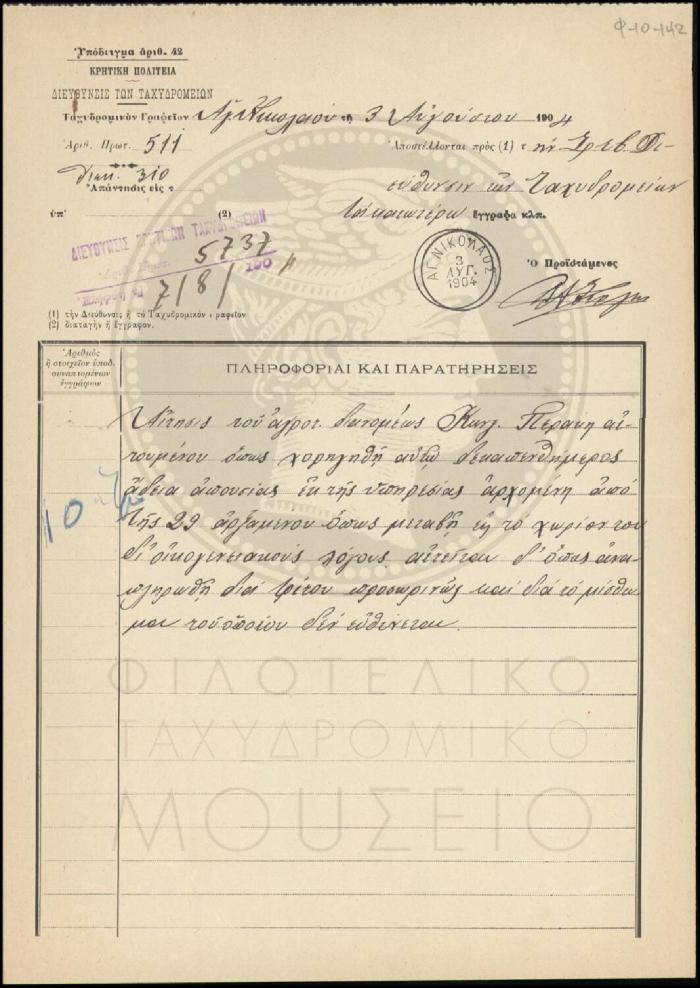 Φ-10-142
Ὑπόδειγμα ἀριθ. 42
ΚΡΗΤΙΚΗ ΠΟΛΙΤΕΙΑ
ΔΙΕΥΘΥΝΣΙΣ ΤΩΝ ΤΑΧΥΔΡΟΜΕΙΩΝ
Ταχυδρομικὸν Γραφεῖον Ἁγ. Νικολάου τῇ 3 Αὐγούστου 1904
Ἀριθ. Πρωτ. 511
Ἀποστέλλονται πρὸς (1) τ ὴν Σεβ. Δι-
διεκπ. 310
Ἀπάντησις εἰς τ
εύθυνσιν τῶν Ταχυδρομείων
ὑπ' (2)
τὰ κατωτέρω ἔγγραφα κλπ.
ΔΙΕΥΘΥΝΣΙΣ ΚΡΗΤΙΚΩΝ ΤΑΧΥΔΡΟΜΕΙΩΝ
5737
7/8/ 190
ΑΓ. ΝΙΚΟΛΑΟΣ
3
ΑΥΓ.
1904
Ὁ Προϊστάμενος
(1) τὴν Διεύθυνσις ἢ τὸ Ταχυδρομικὸν Γραφεῖον
(2) διαταγὴν ἢ ἔγγραφον.
Ἀριθμὸς
ἢ στοιχεῖον ὑποδ.
συναπτομένων
ἐγγράφων
ΠΛΗΡΟΦΟΡΙΑΙ ΚΑΙ ΠΑΡΑΤΗΡΗΣΕΙΣ
Αἴτησις τοῦ ἀγροτ. διανομέως Κων. Περάκη αἰ-
τουμένου ὅπως χορηγηθῇ αὐτῷ δεκαπενθήμερος
ἄδεια ἀπουσίας ἐκ τῆς ὑπηρεσίας ἀρχομένη ἀπὸ
τῆς 29 ὅπως μεταβῇ εἰς τὸ χωρίον του
δι' οἰκογενειακοὺς λόγους αἰτεῖται δ' ὅπως ἀνα-
πληρωθῇ διὰ τρίτου προσωρινῶς καὶ διὰ τὸ μίσθω-
μα τοῦ ὁποίου δὲν εὐθύνεται.
10
ΦΙΛΟΤΕΛΙΚΟ
ΤΑΧΥΔΡΟΜΙΚΟ
ΜΟΥΣΕΙΟ